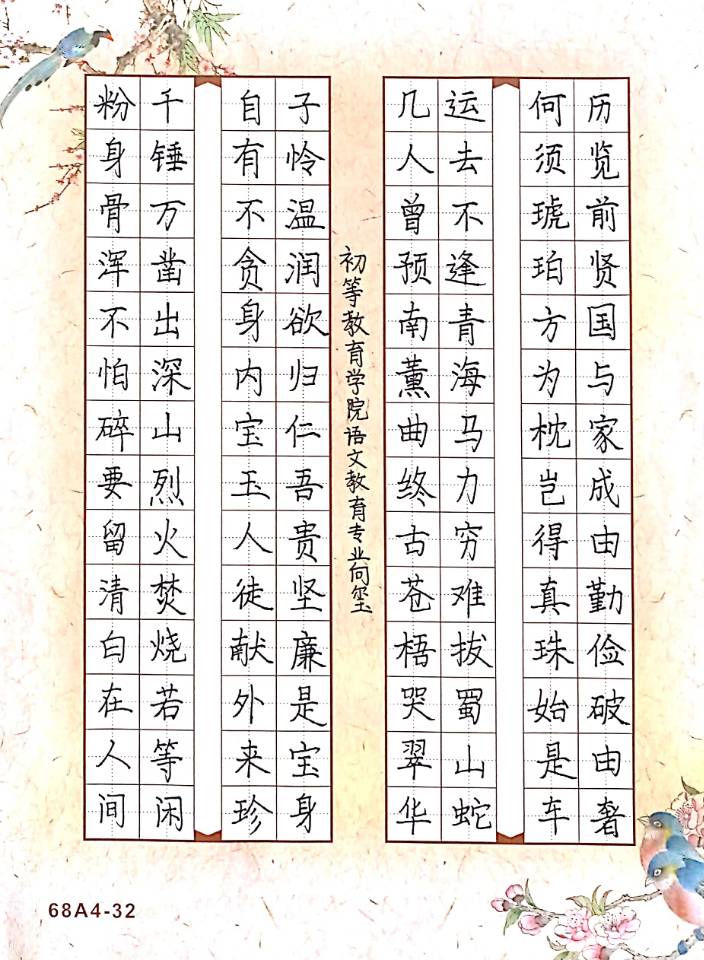 历览前贤国与家成由勤俭破由奢
何须琥珀方为枕岂得真珠始是车
运去不逢青海马力穷难拔蜀山蛇
几人曾预南薰曲终古苍梧哭翠华
初等教育学院语文教育专业向玺
子怜温润欲归仁吾贵坚廉是宝身
自有不贪身内宝玉人徒献外来珍
千锤万凿出深山烈火焚烧若等闲
粉身骨浑不怕碎要留清白在人间
68A4-32